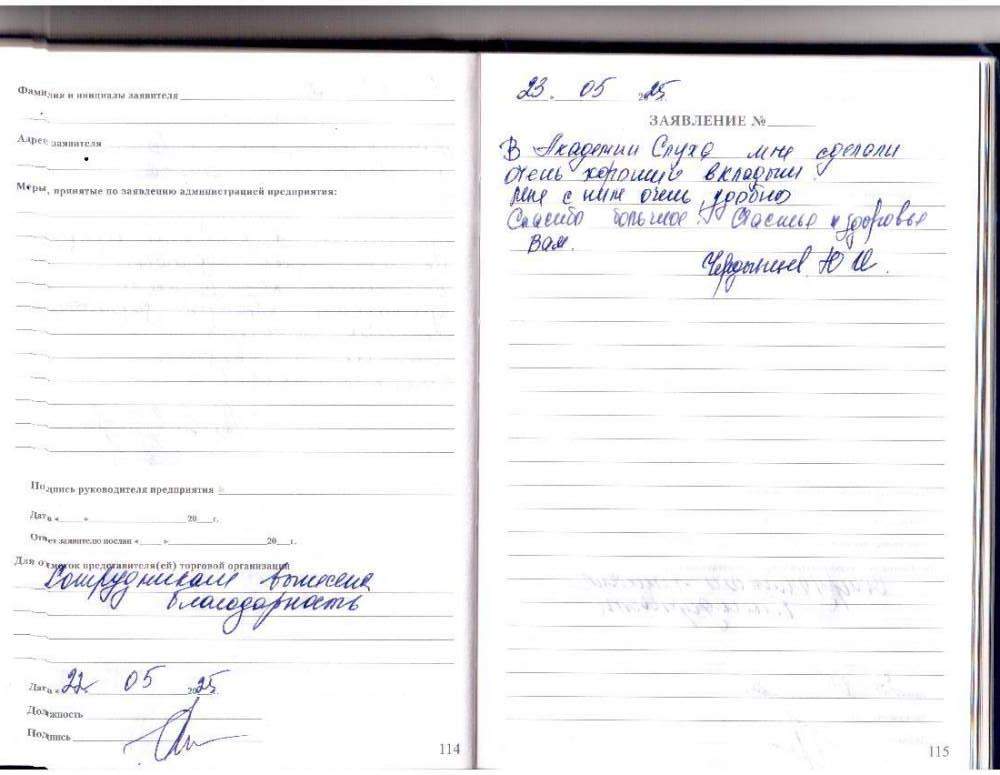 Фамилия и инициалы заявителя
Адрес заявителя
Меры, принятые по заявлению администрацией предприятия:
Подпись руководителя предприятия
Дата « » 20 г.
Ответ заявителю послан « » 20 г.
Для отметок представителя(ей) торговой организации
Сотрудникам вынесена
благодарность
Дата « 22 05 2025
Должность
Подпись
114
23. 05 2025
ЗАЯВЛЕНИЕ №
В Академии Слуха мне сделали
очень хороший вкладыш.
мне с ним очень удобно
Спасибо большое! Счастье и здоровье
Вам.
Ю
115